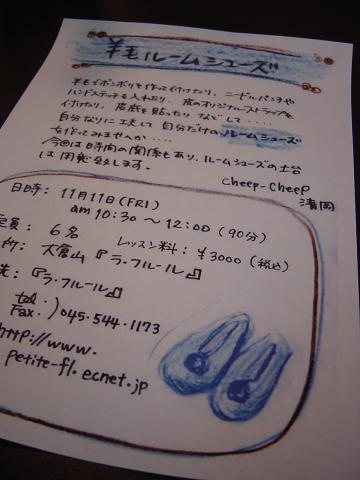 羊毛ルームシューズ
羊毛でボンボリを作って付けたり、ニードルパンチや
ハンドステッチを入れたり、皮のオリジナルストラップを
付けたり、皮底を貼ったり などして‥‥
自分なりに工夫して 自分だけのルームシューズ
を作ってみませんか‥‥
今回は時間の関係もあり、ルームシューズの土台
は用意致します。
cheep-cheep
清岡
日時: 11月11日(FRI)
am 10:30 〜 12:00 (90分)
定員: 6名
レッスン料: ¥3000 (税込)
所: 大倉山『ラ・フルール』
先:『ラ・フルール』
tel.
Fax. ) 045・544・1173
http://www.
petite-fl.ecnet.jp